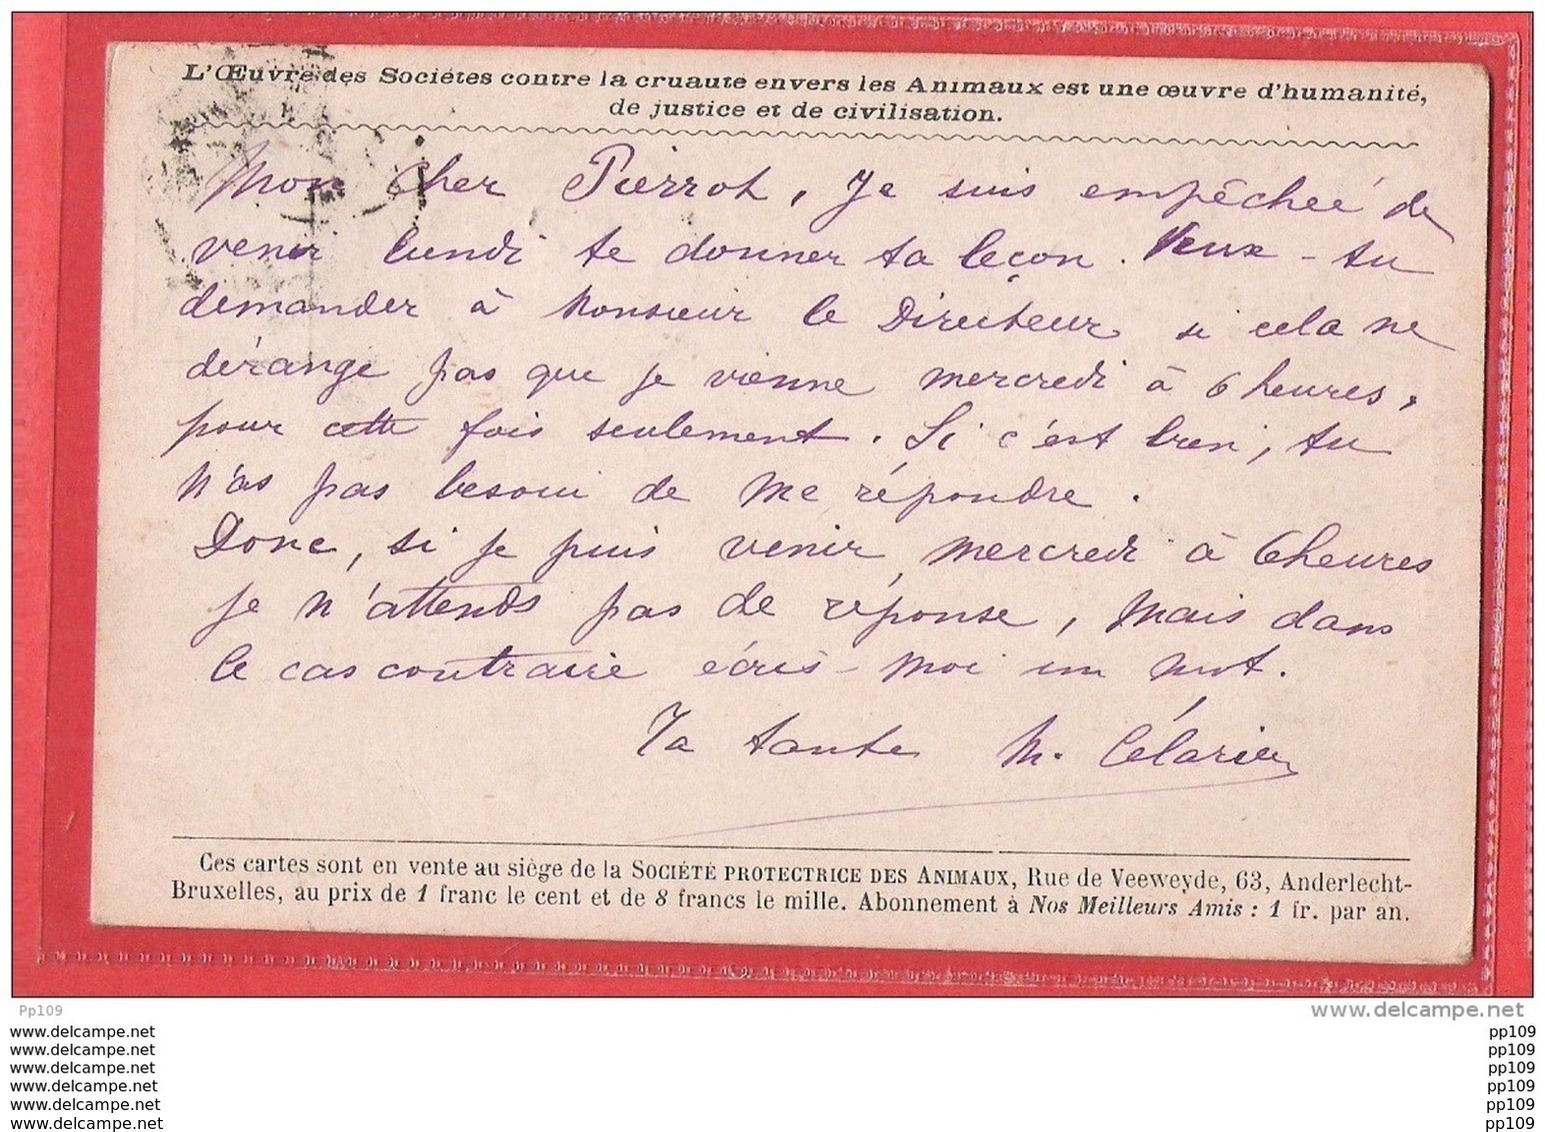 L'Œuvre des Sociétés contre la cruauté envers les Animaux est une œuvre d'humanité,
de justice et de civilisation.
Mon Cher Pierrot, Je suis empêcheé de
venir lundi te donner ta leçon. Veux-tu
demander à Monsieur le Directeur si cela ne
dérange pas que je vienne mercredi à 6 heures,
pour cette fois seulement. Si c'est bien, tu
n'as pas besoin de me répondre.
Donc, si je puis venir mercredi à 6 heures
je n'attends pas de réponse, mais dans
le cas contraire écris-moi un mot.
Ta tante M. Célarier
Ces cartes sont en vente au siège de la SOCIÉTÉ PROTECTRICE DES ANIMAUX, Rue de Veeweyde, 63, Anderlecht-
Bruxelles, au prix de 1 franc le cent et de 8 francs le mille. Abonnement à Nos Meilleurs Amis : 1 fr. par an.
Pp109
www.delcampe.net
www.delcampe.net pp109
www.delcampe.net pp109
www.delcampe.net pp109
www.delcampe.net pp109
www.delcampe.net pp109
www.delcampe.net pp109